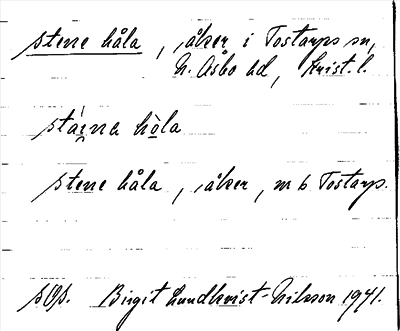 stene håla, åker i Tostarps sn,
N. Åsbo hd, Krist. l.
stáina hòla
stene håla, åker, m b Tostarp.
sOp. Birgit Lundkvist-Nilsson 1941.